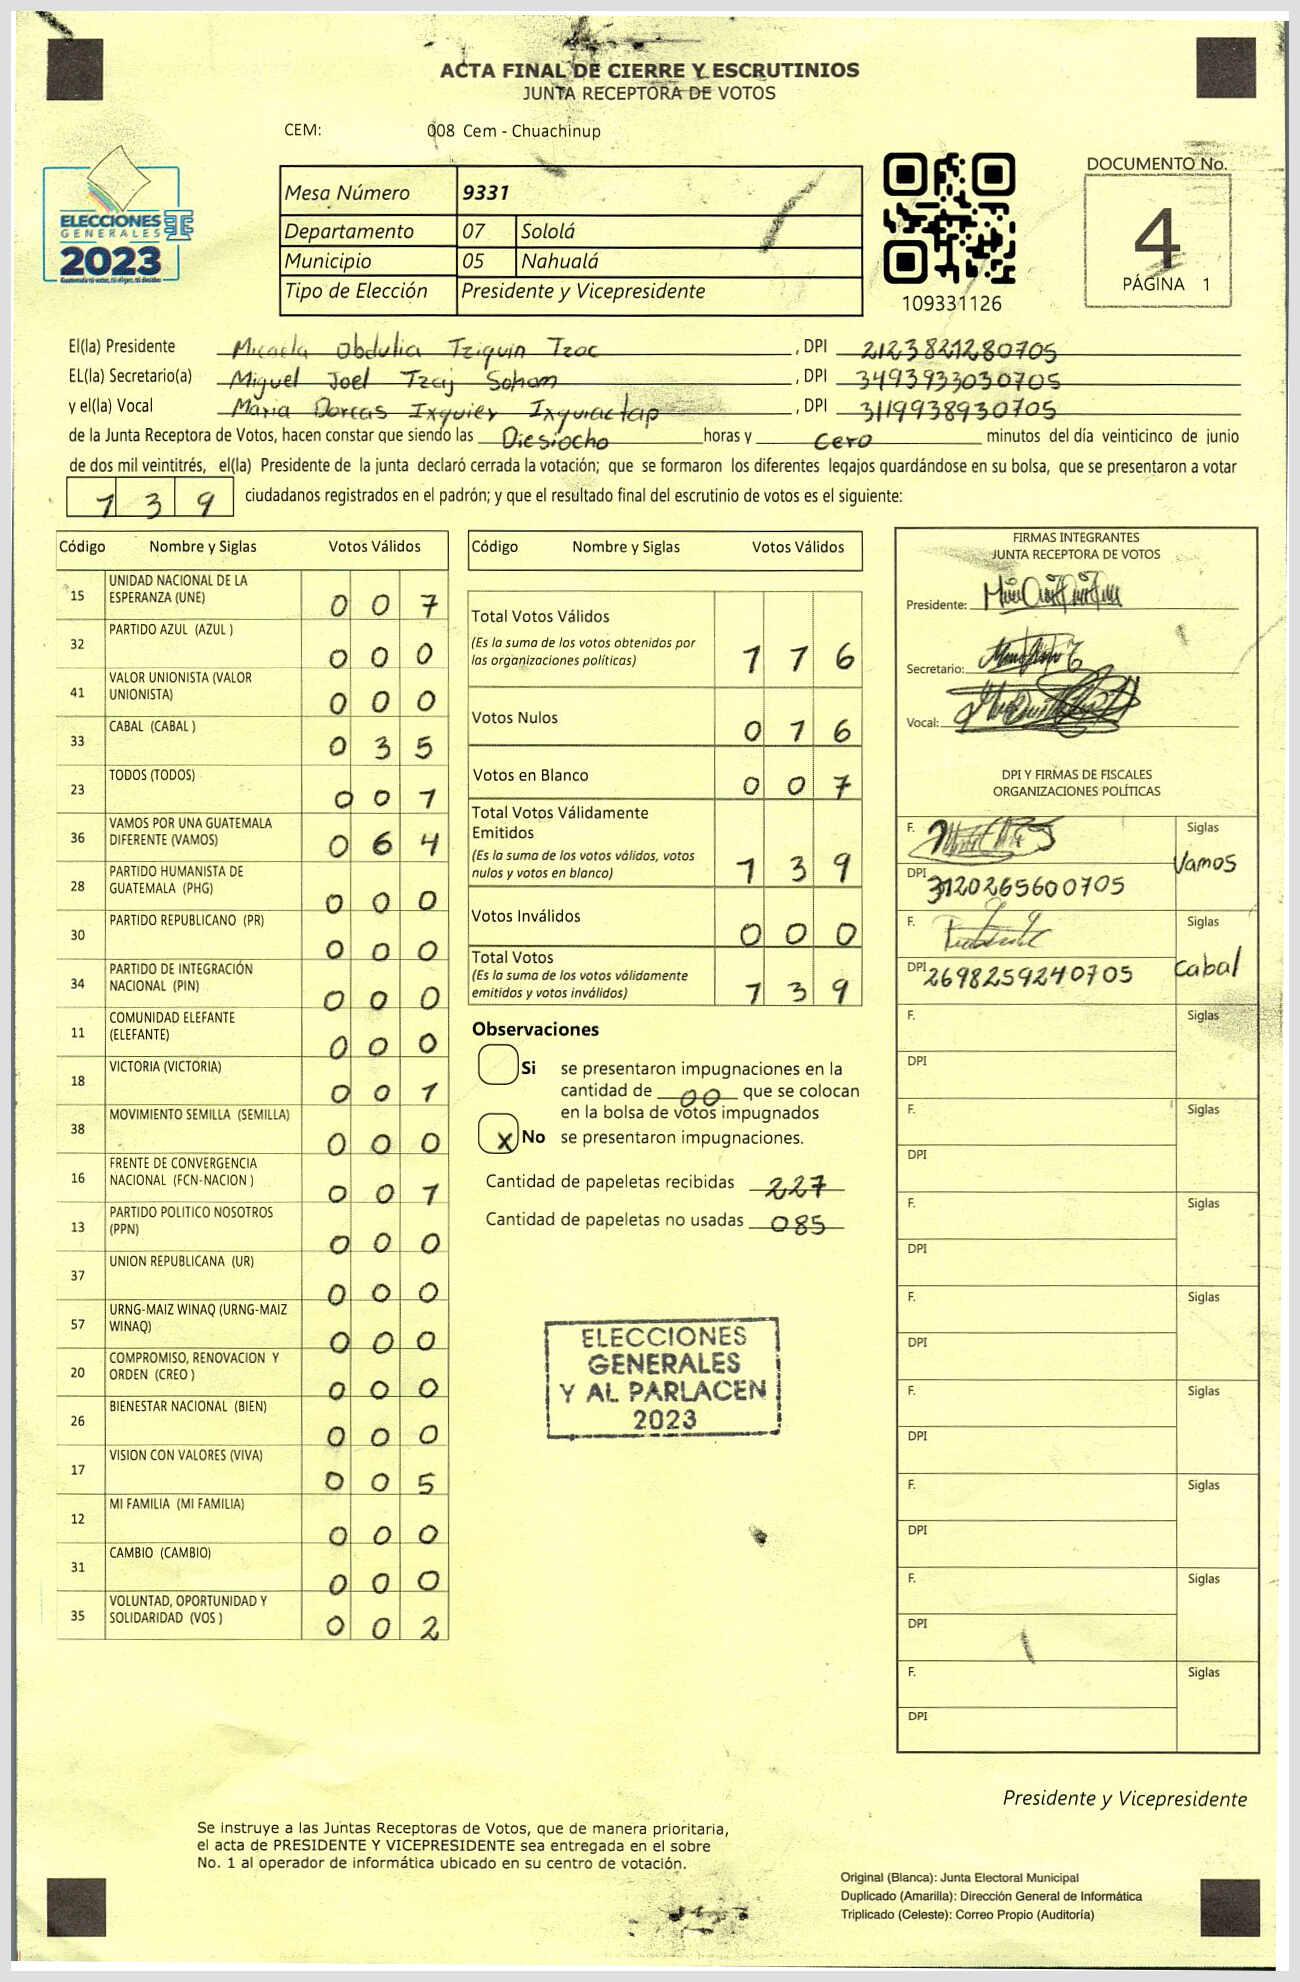 ACTA FINAL DE CIERRE Y ESCRUTINIOS
JUNTA RECEPTORA DE VOTOS
CEM: 008 Cem - Chuachinup
ELECCIONES
GENERALES
2023
Mesa Número 9331
Departamento 07 Sololá
Municipio 05 Nahualá
Tipo de Elección Presidente y Vicepresidente
109331126
DOCUMENTO No.
4
PÁGINA 1
El(la) Presidente Micaela Obdulia Tziquin Tzoc , DPI 2123821280705
EL(la) Secretario(a) Miguel Joel Tzaj Sohom , DPI 3493933030705
y el(la) Vocal Maria Dorcas Ixquier Ixquiactap , DPI 3119938930705
de la Junta Receptora de Votos, hacen constar que siendo las Diesiocho horas y cero minutos del día veinticinco de junio
de dos mil veintitrés, el(la) Presidente de la junta declaró cerrada la votación; que se formaron los diferentes legajos guardándose en su bolsa, que se presentaron a votar
139 ciudadanos registrados en el padrón; y que el resultado final del escrutinio de votos es el siguiente:
Código Nombre y Siglas Votos Válidos
15 UNIDAD NACIONAL DE LA ESPERANZA (UNE) 007
32 PARTIDO AZUL (AZUL ) 000
41 VALOR UNIONISTA (VALOR UNIONISTA) 000
33 CABAL (CABAL ) 035
23 TODOS (TODOS) 001
36 VAMOS POR UNA GUATEMALA DIFERENTE (VAMOS) 064
28 PARTIDO HUMANISTA DE GUATEMALA (PHG) 000
30 PARTIDO REPUBLICANO (PR) 000
34 PARTIDO DE INTEGRACIÓN NACIONAL (PIN) 000
11 COMUNIDAD ELEFANTE (ELEFANTE) 000
18 VICTORIA (VICTORIA) 001
38 MOVIMIENTO SEMILLA (SEMILLA) 000
16 FRENTE DE CONVERGENCIA NACIONAL (FCN-NACION ) 001
13 PARTIDO POLITICO NOSOTROS (PPN) 000
37 UNION REPUBLICANA (UR) 000
57 URNG-MAIZ WINAQ (URNG-MAIZ WINAQ) 000
20 COMPROMISO, RENOVACION Y ORDEN (CREO ) 000
26 BIENESTAR NACIONAL (BIEN) 000
17 VISION CON VALORES (VIVA) 005
12 MI FAMILIA (MI FAMILIA) 000
31 CAMBIO (CAMBIO) 000
35 VOLUNTAD, OPORTUNIDAD Y SOLIDARIDAD (VOS ) 002
Código Nombre y Siglas Votos Válidos
Total Votos Válidos
(Es la suma de los votos obtenidos por
las organizaciones políticas) 116
Votos Nulos 016
Votos en Blanco 007
Total Votos Válidamente
Emitidos
(Es la suma de los votos válidos, votos
nulos y votos en blanco) 139
Votos Inválidos 000
Total Votos
(Es la suma de los votos válidamente
emitidos y votos inválidos) 139
Observaciones
Si se presentaron impugnaciones en la
cantidad de 00 que se colocan
en la bolsa de votos impugnados
X No se presentaron impugnaciones.
Cantidad de papeletas recibidas 227
Cantidad de papeletas no usadas 085
ELECCIONES
GENERALES
Y AL PARLACEN
2023
FIRMAS INTEGRANTES
JUNTA RECEPTORA DE VOTOS
Presidente:
Secretario:
Vocal:
DPI Y FIRMAS DE FISCALES
ORGANIZACIONES POLÍTICAS
F. Siglas
Vamos
DPI 3120265600705
F. Siglas
DPI 2698259240705 Cabal
F. Siglas
DPI
F. Siglas
DPI
F. Siglas
DPI
F. Siglas
DPI
F. Siglas
DPI
F. Siglas
DPI
F. Siglas
DPI
F. Siglas
DPI
Presidente y Vicepresidente
Se instruye a las Juntas Receptoras de Votos, que de manera prioritaria,
el acta de PRESIDENTE Y VICEPRESIDENTE sea entregada en el sobre
No. 1 al operador de informática ubicado en su centro de votación.
Original (Blanca): Junta Electoral Municipal
Duplicado (Amarilla): Dirección General de Informática
Triplicado (Celeste): Correo Propio (Auditoría)